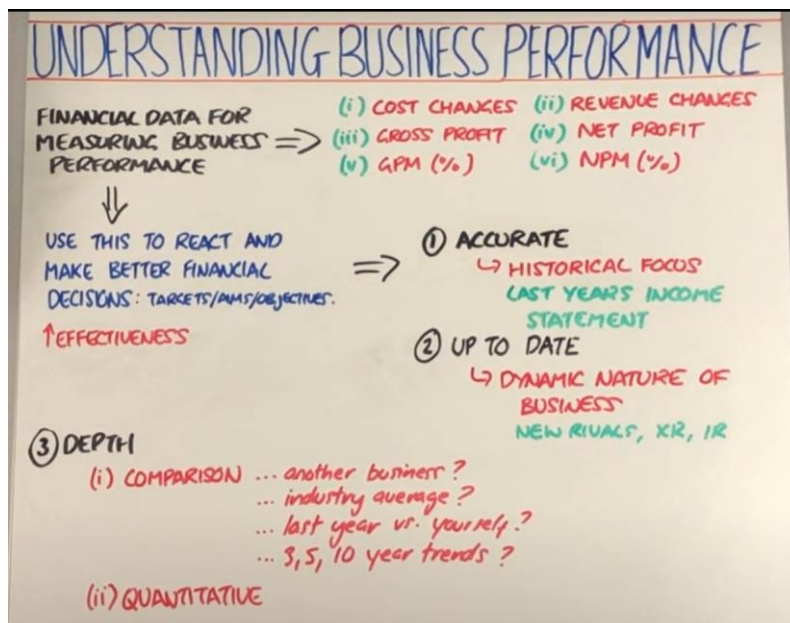 UNDERSTANDING BUSINESS PERFORMANCE
FINANCIAL DATA FOR
MEASURING BUSINESS
PERFORMANCE
=> (i) COST CHANGES (ii) REVENUE CHANGES
(iii) GROSS PROFIT (iv) NET PROFIT
(v) GPM (%) (vi) NPM (%)
USE THIS TO REACT AND
MAKE BETTER FINANCIAL
DECISIONS: TARGETS/AIMS/OBJECTIVES.
↑EFFECTIVENESS
=> ① ACCURATE
↳ HISTORICAL FOCUS
LAST YEARS INCOME
STATEMENT
② UP TO DATE
↳ DYNAMIC NATURE OF
BUSINESS
NEW RIVALS, XR, IR
③ DEPTH
(i) COMPARISON ... another business?
... industry average?
... last year vs. yourself?
... 3, 5, 10 year trends?
(ii) QUANTITATIVE